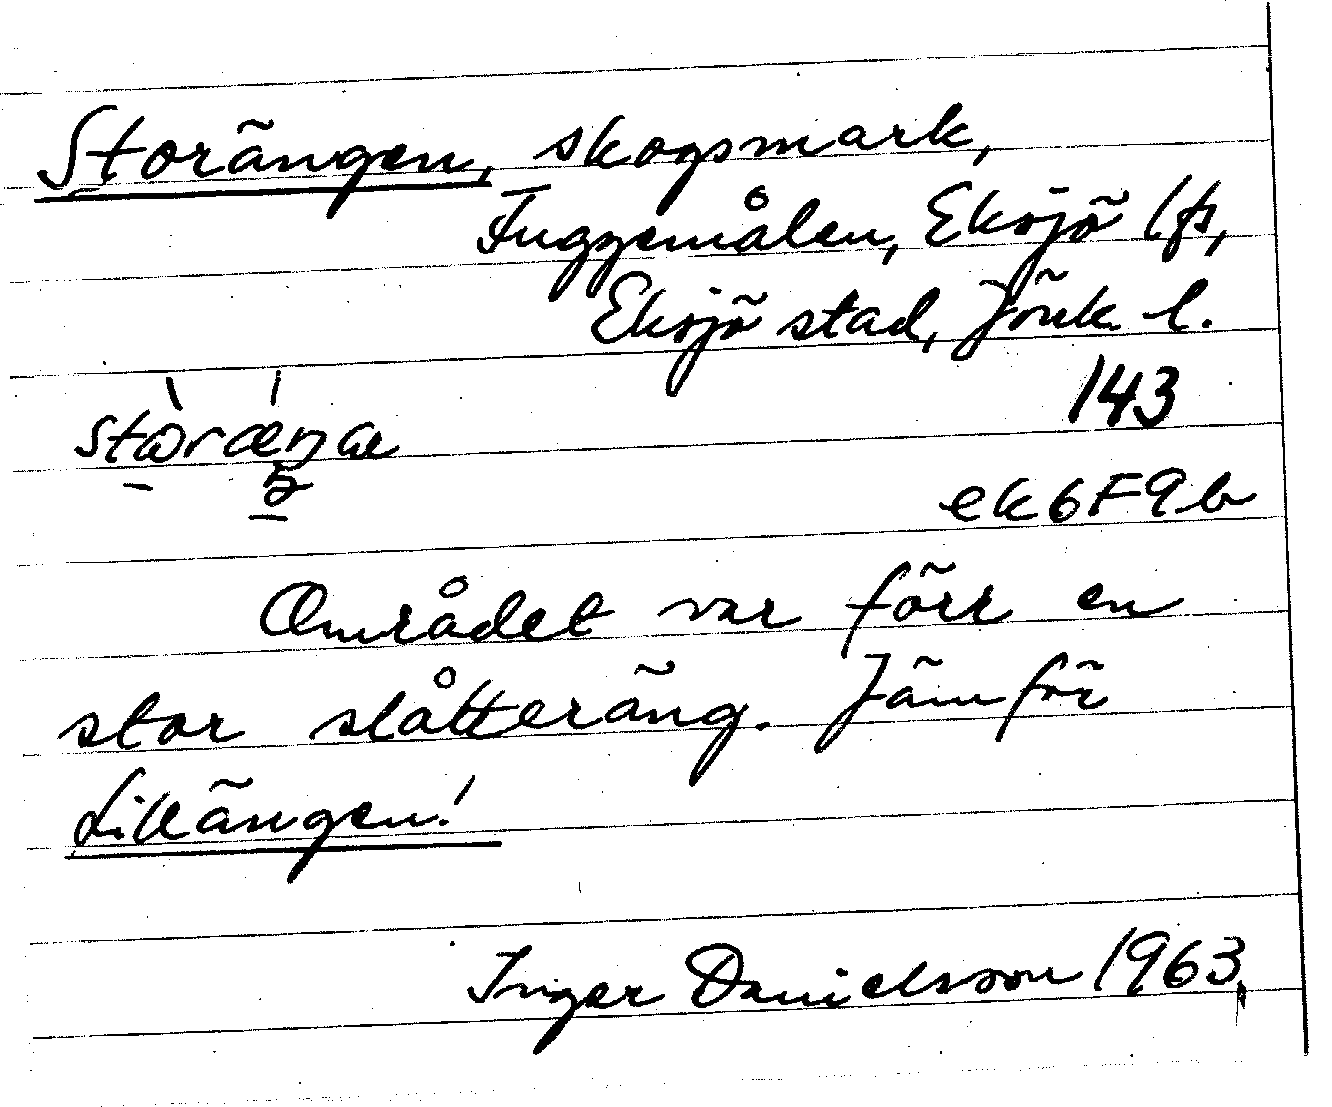 Storängen, skogsmark,
Fuggemålen, Eksjö lfs,
Eksjö stad, Jönk. l.
143
ek6F9b
Området var förr en
stor slåtteräng. Jämför
Lillängen!
Inger Danielsson 1963